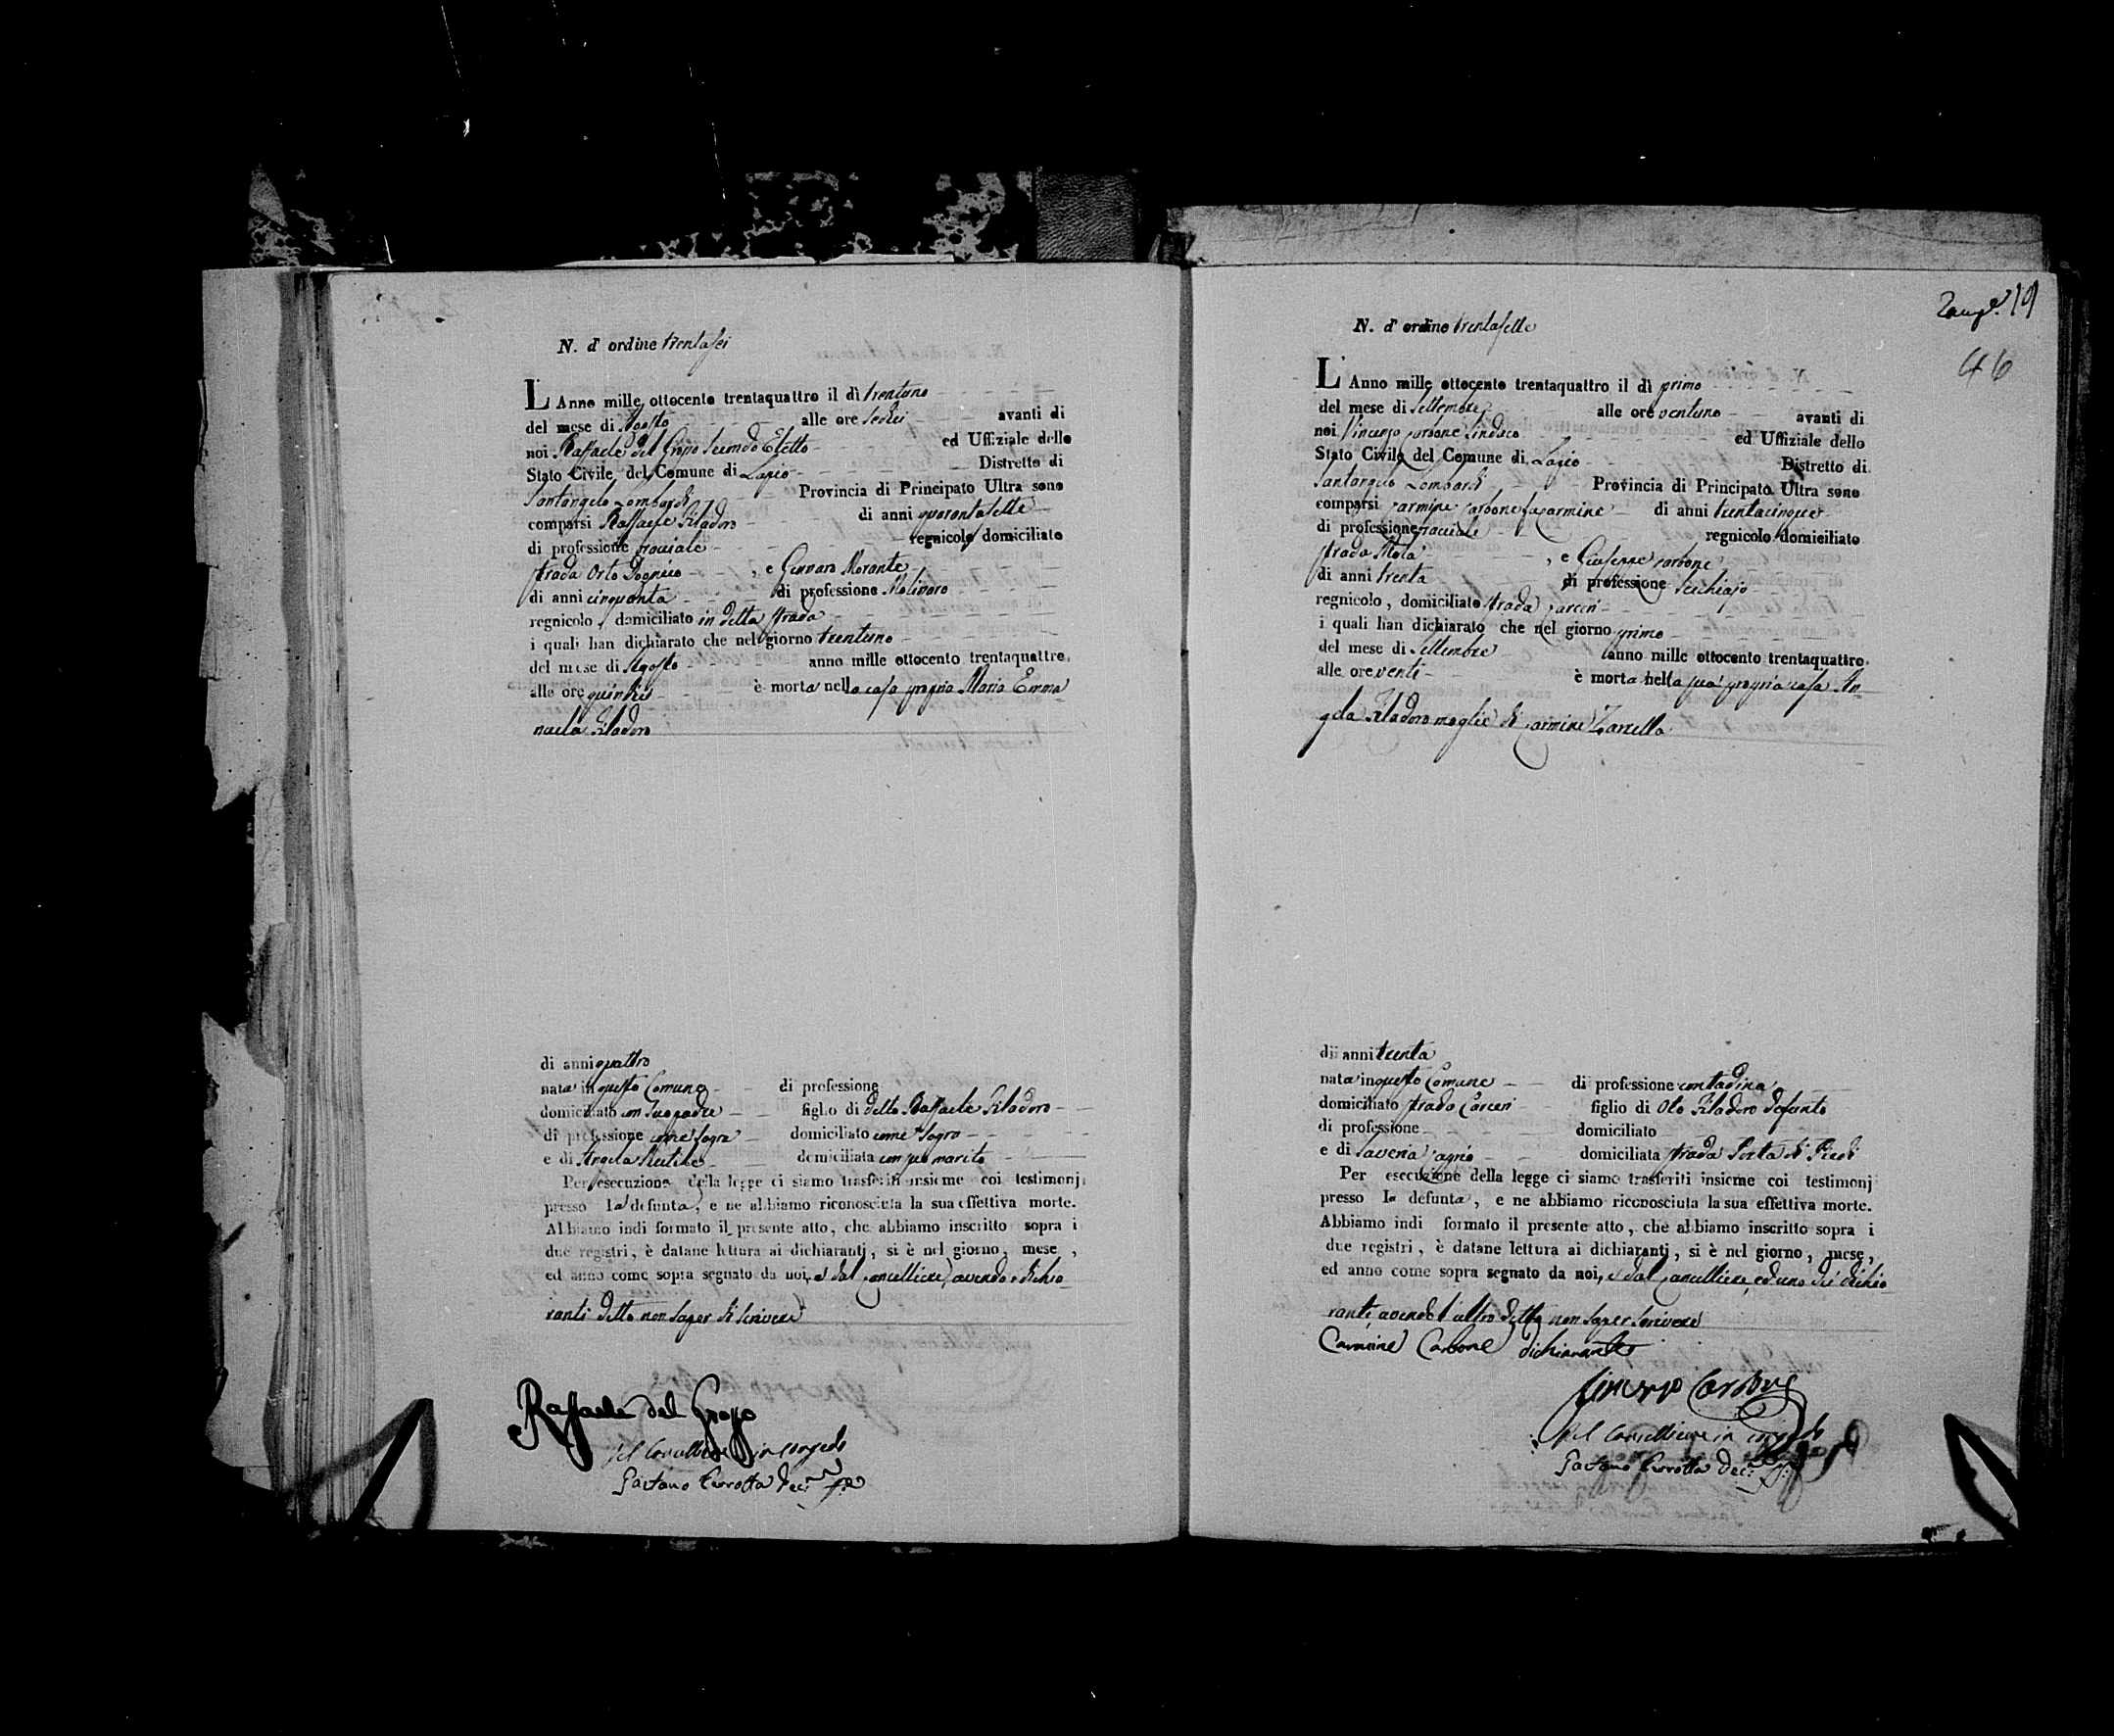 N. d' ordine trentasei
L' Anno mille ottocento trentaquattro il dì trentuno
del mese di Agosto alle ore sedici avanti di
noi Raffaele del Grosso Secondo Eletto ed Uffiziale dello
Stato Civile del Comune di Lapio Distretto di
Santangelo Lombardi Provincia di Principato Ultra sono
comparsi Raffaele Filadoro di anni quarantasette
di professione regnicolo domiciliato
strada Orto , e Gennaro Morante
di anni cinquanta di professione Molinaro
regnicolo, domiciliato in detta strada
i quali han dichiarato che nel giorno trentuno
del mese di Agosto anno mille ottocento trentaquattro,
alle ore quindici è morta nella casa propria Maria Emma
nuela Filadoro
di anni quattro
nata in questo Comune di professione
domiciliato con suo padre figlio di detto Raffaele Filadoro
di professione come sopra domiciliato come sopra
e di Angela domiciliata con suo marito
Per esecuzione della legge ci siamo trasferiti insieme coi testimonj
presso la defunta, e ne abbiamo riconosciuta la sua effettiva morte.
Abbiamo indi formato il presente atto, che abbiamo inscritto sopra i
due registri, è datane lettura ai dichiaranti, si è nel giorno, mese,
ed anno come sopra segnato da noi, e dal Cancelliere, avendo i dichia
ranti detto non saper di scrivere
Raffaele del Grosso
Pel Cancelliere in congedo
Gaetano Perrotta
2 19
46
N. d' ordine trentasette
L' Anno mille ottocento trentaquattro il dì primo
del mese di Settembre alle ore ventuno avanti di
noi Vincenzo Carbone Sindaco ed Uffiziale dello
Stato Civile del Comune di Lapio Distretto di
Santangelo Lombardi Provincia di Principato Ultra sono
comparsi Carmine Carbone fu Carmine di anni trentacinque
di professione regnicolo domiciliato
strada , e Giuseppe Carbone
di anni trenta di professione
regnicolo, domiciliato strada Carceri
i quali han dichiarato che nel giorno primo
del mese di Settembre anno mille ottocento trentaquattro
alle ore venti è morta nella sua propria casa An
gela Filadoro moglie di Carmine Zarrella
di anni trenta
nata in questo Comune di professione contadina
domiciliato strada Carceri figlio di Oto Filadoro defunto
di professione domiciliato
e di Saveria domiciliata strada Porta di Piedi
Per esecuzione della legge ci siamo trasferiti insieme coi testimonj
presso la defunta, e ne abbiamo riconosciuta la sua effettiva morte.
Abbiamo indi formato il presente atto, che abbiamo inscritto sopra i
due registri, è datane lettura ai dichiaranti, si è nel giorno, mese,
ed anno come sopra segnato da noi, e dal Cancelliere, ed uno dei dichia
ranti, avendo l'altro detto non saper scrivere
Carmine Carbone dichiarante
Vincenzo Carbone
Pel Cancelliere in congedo
Gaetano Perrotta